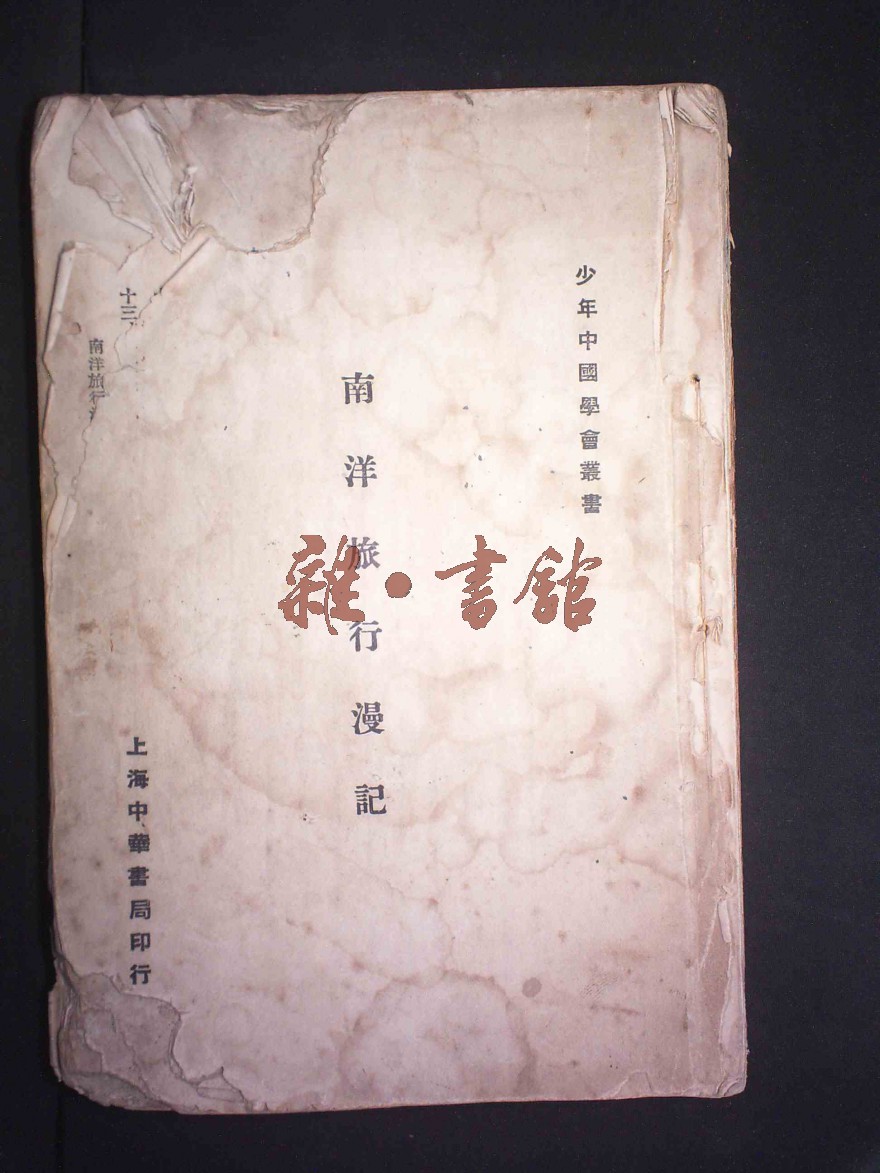 少年中國學會叢書
南洋旅行漫記
雜·書館
上海中華書局印行
十三
南洋旅行